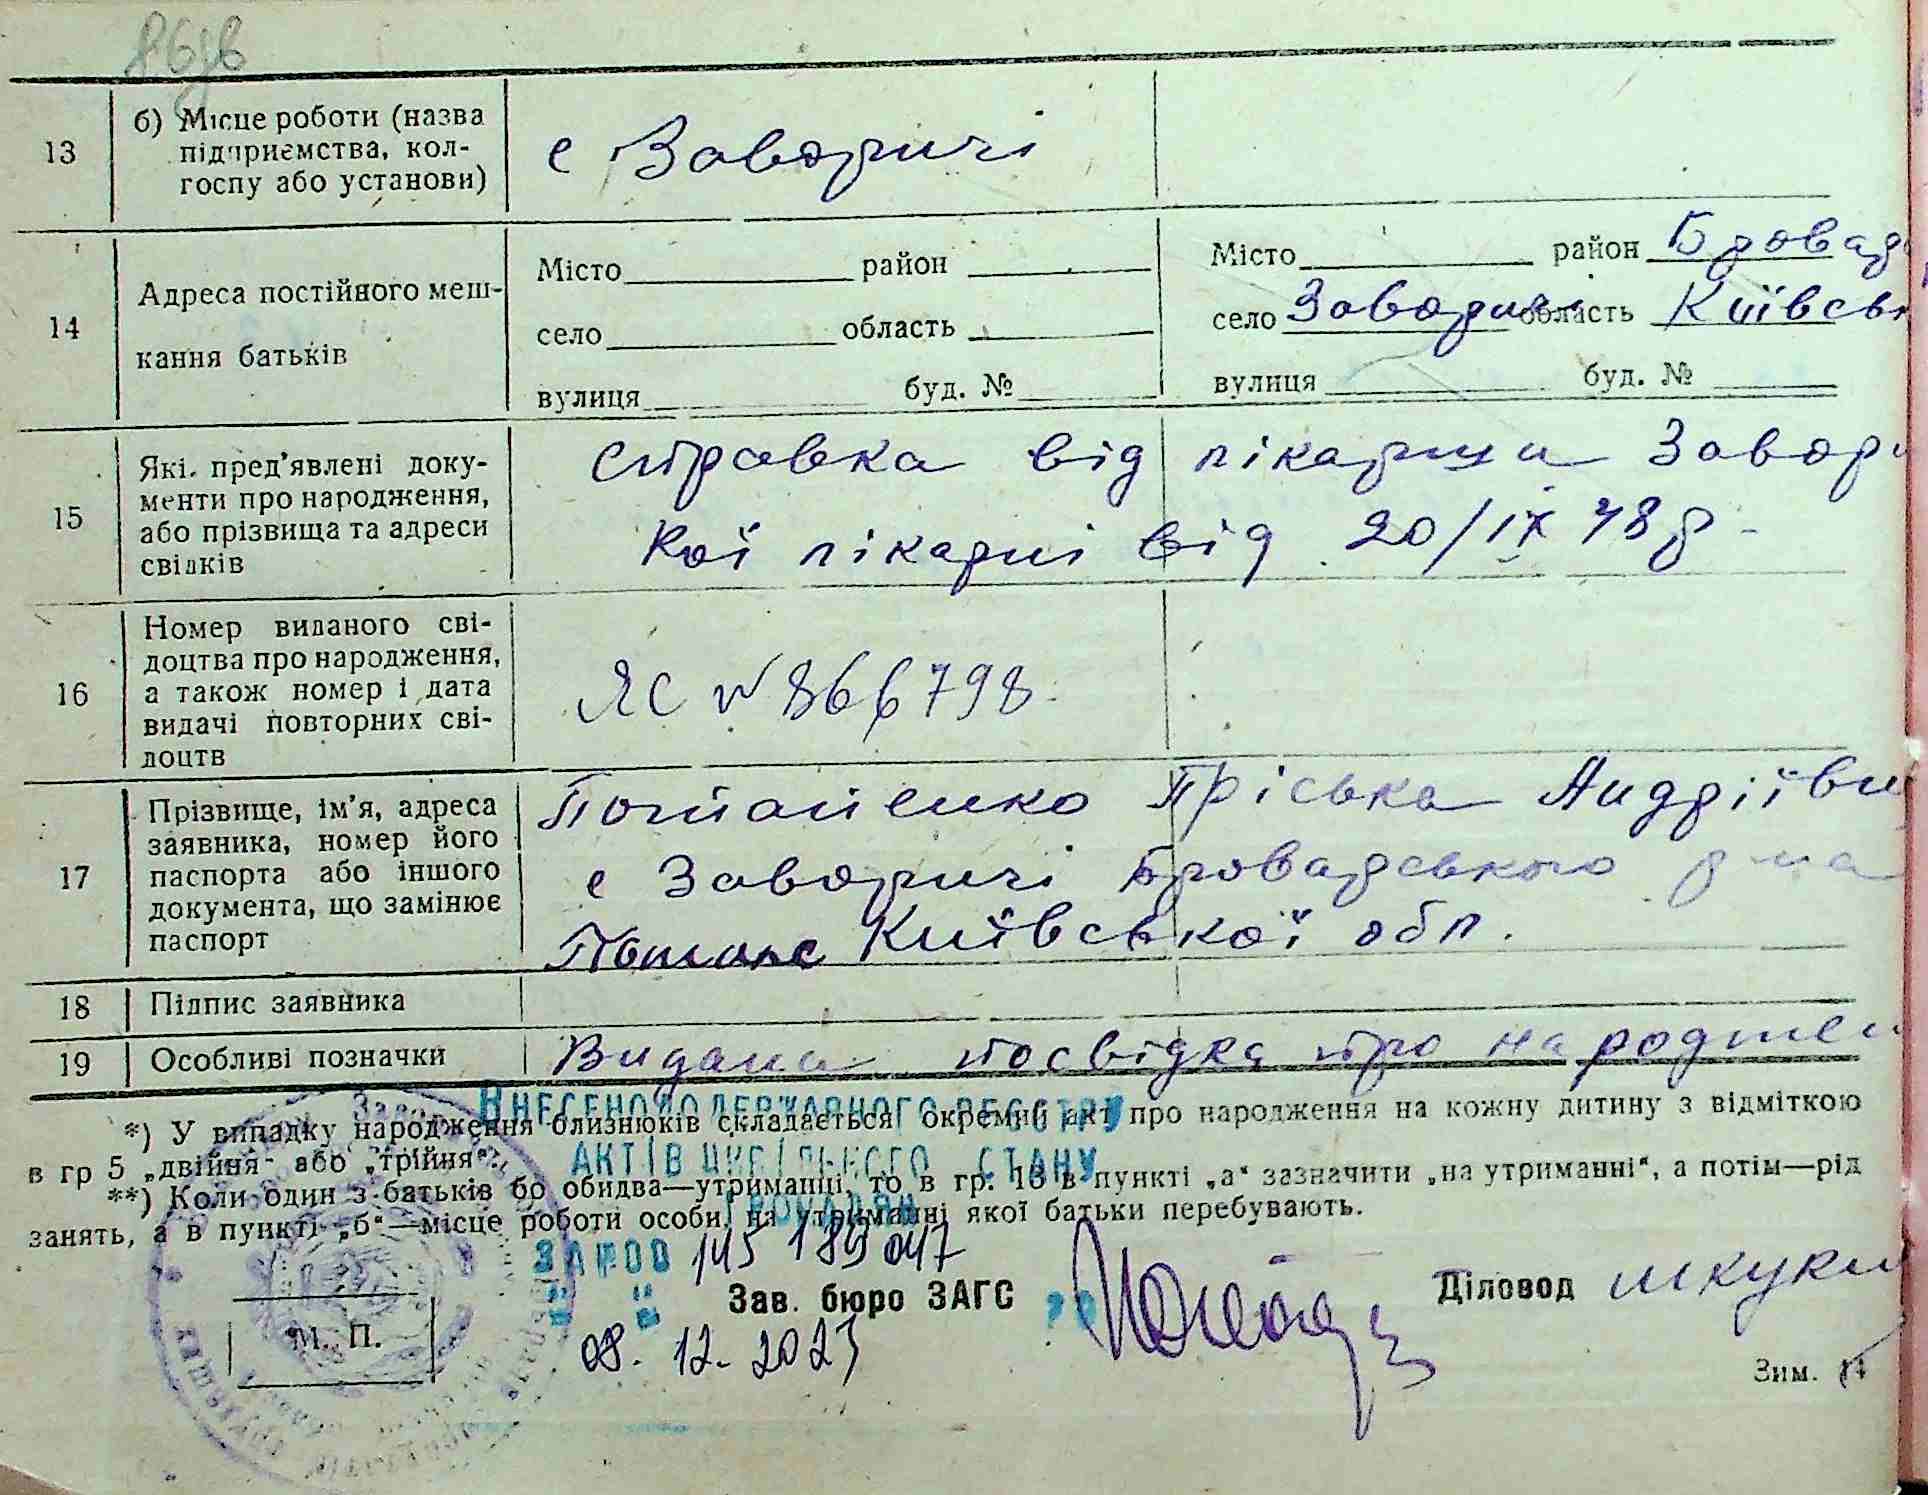 13 б) Місце роботи (назва підприємства, колгоспу або установи) с Заворичі
14 Адреса постійного мешкання батьків
Місто район Місто район Бровар
село область село Заворичі область Київськ
вулиця буд. № вулиця буд. №
15 Які пред'явлені документи про народження, або прізвища та адреси свідків
справка від лікарши Завори
кої лікарні від 20/IX 48 р.
16 Номер виданого свідоцтва про народження, а також номер і дата видачі повторних свідоцтв
ЯС № 866798
17 Прізвище, ім'я, адреса заявника, номер його паспорта або іншого документа, що замінює паспорт
Потапенко Пріська Андріївн
с Заворичі Броварського р на
Київської обл.
18 Підпис заявника
19 Особливі позначки Видана посвідка про народжен
*) У випадку народження близнюків складається окремий акт про народження на кожну дитину з відміткою
в гр 5 „двійня" або „трійня".
**) Коли один з батьків бо обидва—утриманці, то в гр. 13 в пункті „а" зазначити „на утриманні", а потім—рід
занять, а в пункті „б"—місце роботи особи, на утриманні якої батьки перебувають.
ВНЕСЕНО ДО ДЕРЖАВНОГО РЕЄСТРУ
АКТІВ ЦИВІЛЬНОГО СТАНУ
ГРОМАДЯН
ЗА №00 145 189 047
Зав. бюро ЗАГС Діловод
М. П.
08. 12. 2023
Зим. 14